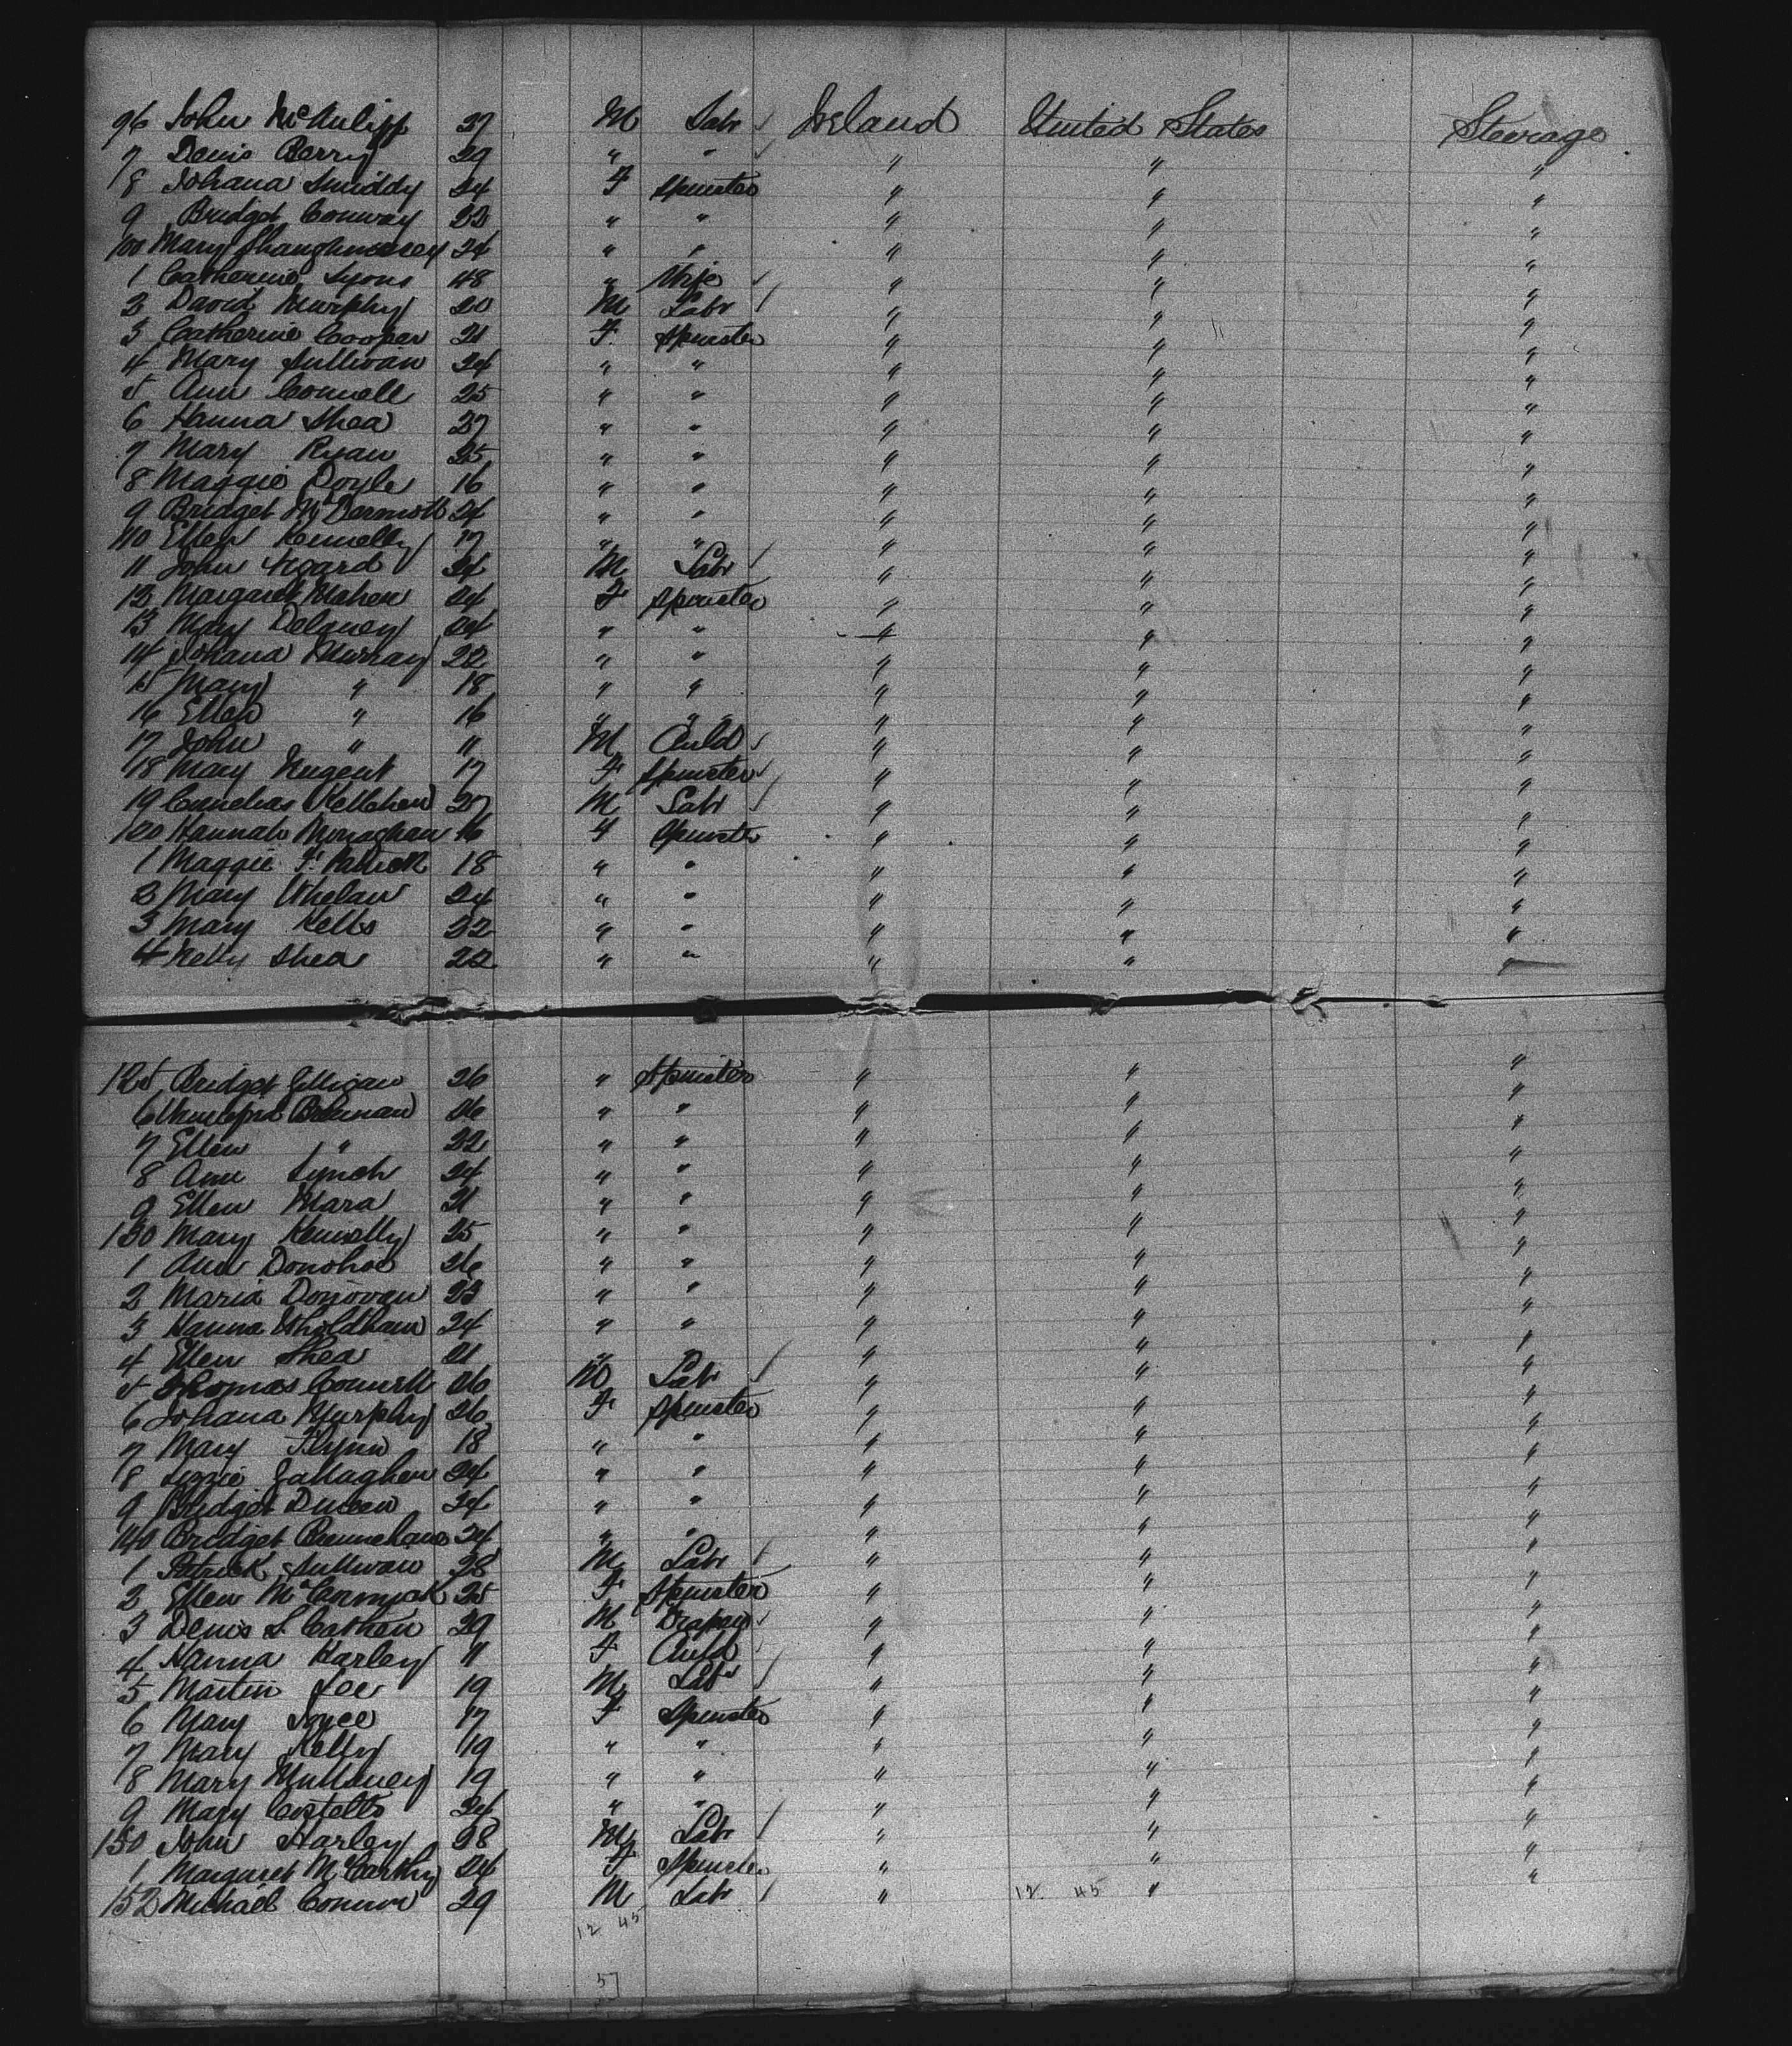 96 John McAuliff 27 M Labr Ireland United States Steerage
7 Denis Berry 29 " " " " "
8 Johana Smiddy 24 F Spinster " " "
9 Bridget Conway 23 " " " " "
100 Mary Shaughnessey 24 " " " " "
1 Catherine Lyons 48 " Wife " " "
2 David Murphy 20 M Labr " " "
3 Catherine Cooper 21 F Spinster " " "
4 Mary Sullivan 24 " " " " "
5 Ann Connell 25 " " " " "
6 Hanna Shea 27 " " " " "
7 Mary Ryan 25 " " " " "
8 Maggie Doyle 16 " " " " "
9 Bridget McDermott 24 " " " " "
110 Ellen Kennelly 17 " " " " "
11 John 24 M Labr " " "
12 Margaret Mahen 24 F Spinster " " "
13 Mary Delaney 24 " " " " "
14 Johana Murray 22 " " " " "
15 Mary " 18 " " " " "
16 Ellen " 16 " " " " "
17 John " 11 M Child " " "
18 Mary Nugent 17 F Spinster " " "
19 Cornelius Kellehen 27 M Labr " " "
120 Hannah Monaghan 16 F Spinster " " "
1 Maggie F. Patrick 18 " " " " "
2 Mary Whelan 24 " " " " "
3 Mary Kells 22 " " " " "
4 Nelly Shea 22 " " " " "
125 Bridget Gilligan 26 " Spinster " " "
6 Winefred Brennan 26 " " " " "
7 Ellen " 22 " " " " "
8 Ann Lynch 24 " " " " "
9 Ellen Mara 21 " " " " "
130 Mary Kennelly 25 " " " " "
1 Ann Donohoe 26 " " " " "
2 Maria Donovan 23 " " " " "
3 Hanna 24 " " " " "
4 Ellen Shea 21 " " " " "
5 Thomas Connell 26 M Labr " " "
6 Johana Murphy 26 F Spinster " " "
7 Mary Flynn 18 " " " " "
8 Lizzie Gallagher 24 " " " " "
9 Bridget Dineen 24 " " " " "
140 Bridget 24 " " " " "
1 Patrick Sullivan 28 M Labr " " "
2 Ellen McCormack 25 F Spinster " " "
3 Denis L. Cothen 29 M Draper " " "
4 Hanna Harley 11 F Child " " "
5 Martin Lee 19 M Labr " " "
6 Mary Joyce 17 F Spinster " " "
7 Mary Kelly 19 " " " " "
8 Mary Mullaney 19 " " " " "
9 Mary Costello 24 " " " " "
150 John Harley 28 M Labr " " "
1 Margaret McCarthy 24 F Spinster " " "
152 Michael Connor 29 M Labr " 12 45 " "
12 45
57